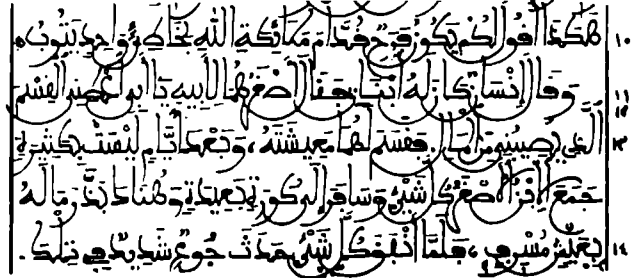 ١٠ هكذا أقول لكم يكون فرح قدام ملائكة الله بخاطئ واحد يتوب.
١١ ١٢ وقال إنسان كان له ابنان فقال أصغرهما لأبيه يا أبي أعطني القسم
١٣ الذي يصيبني من المال. فقسم لهما معيشته، وبعد أيام ليست بكثيرة
جمع الابن الأصغر كل شيء وسافر إلى كورة بعيدة وهناك بذر ماله
١٤ بعيش مسرف، فلما أنفق كل شيء حدث جوع شديد في تلك.